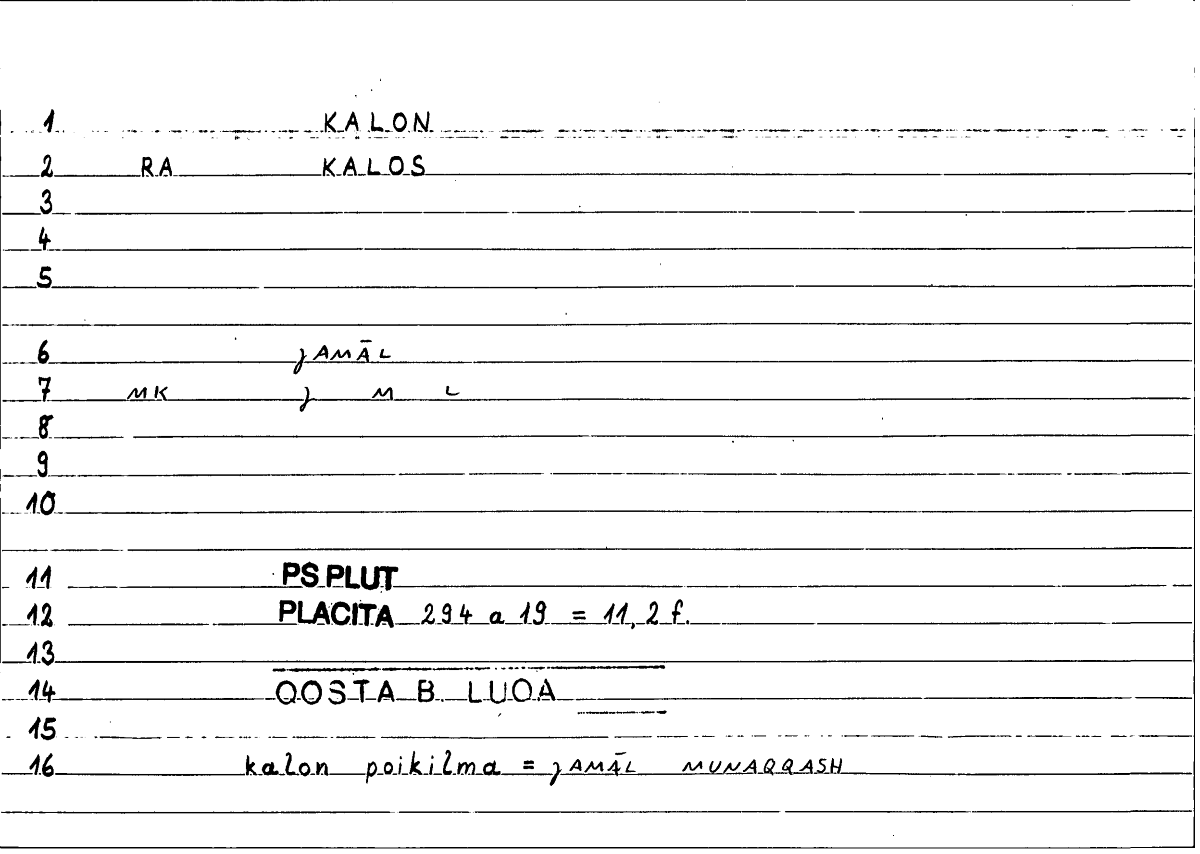 1 KALON
2 RA KALOS
3
4
5
6 ȷAMĀL
7 MK ȷ M L
8
9
10
11 PS.PLUT
12 PLACITA 294 a 19 = 11,2 f.
13
14 QOSTA B. LUQA
15
16 kalon poikilma = ȷAMĀL MUNAQQASH